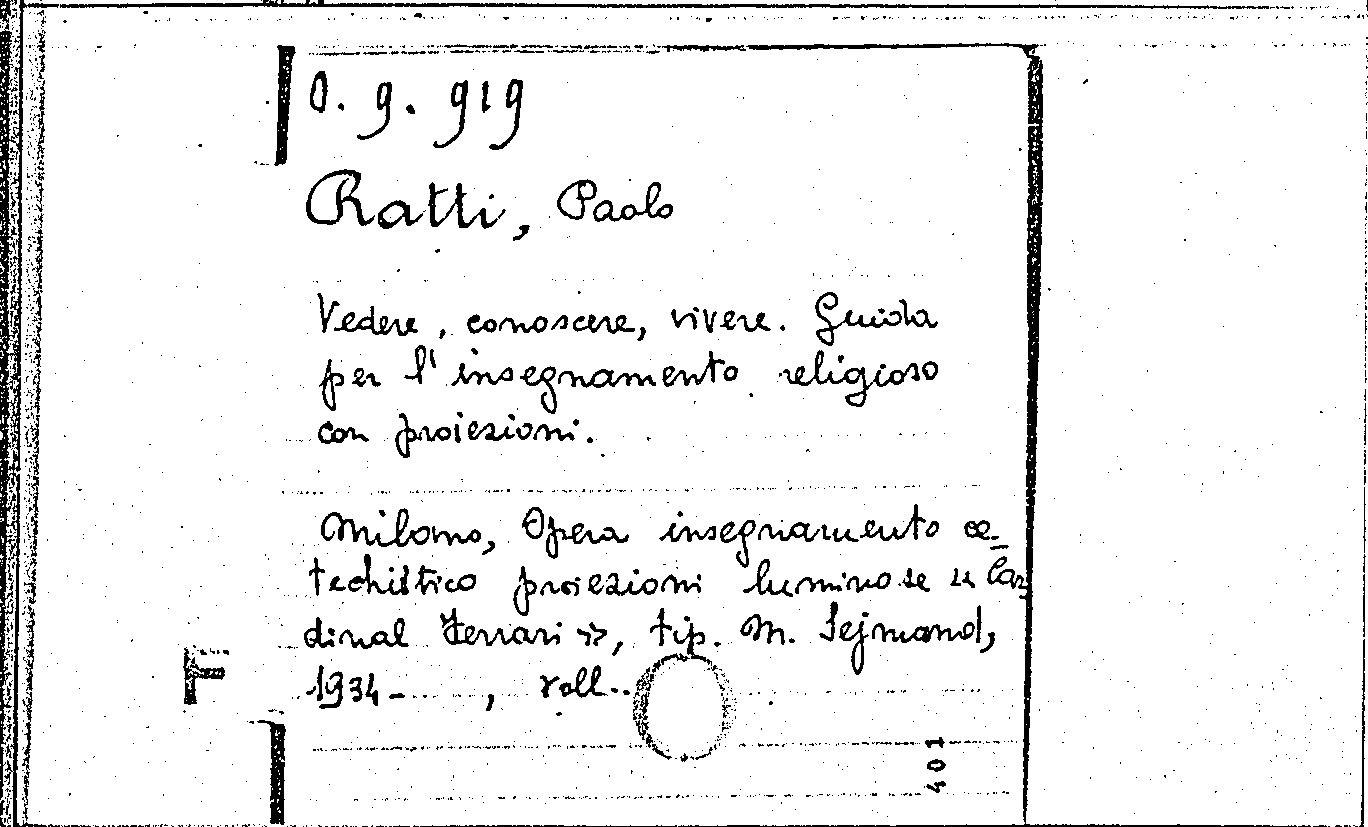 O. 9. 919
Ratti, Paolo
Vedere, conoscere, vivere. Guida
per l'insegnamento religioso
con proiezioni.
Milano, Opera insegnamento ca-
techistico proiezioni luminose « Car
dinal Ferrari », tip. M. Sejmand,
1934- , voll..
F
401